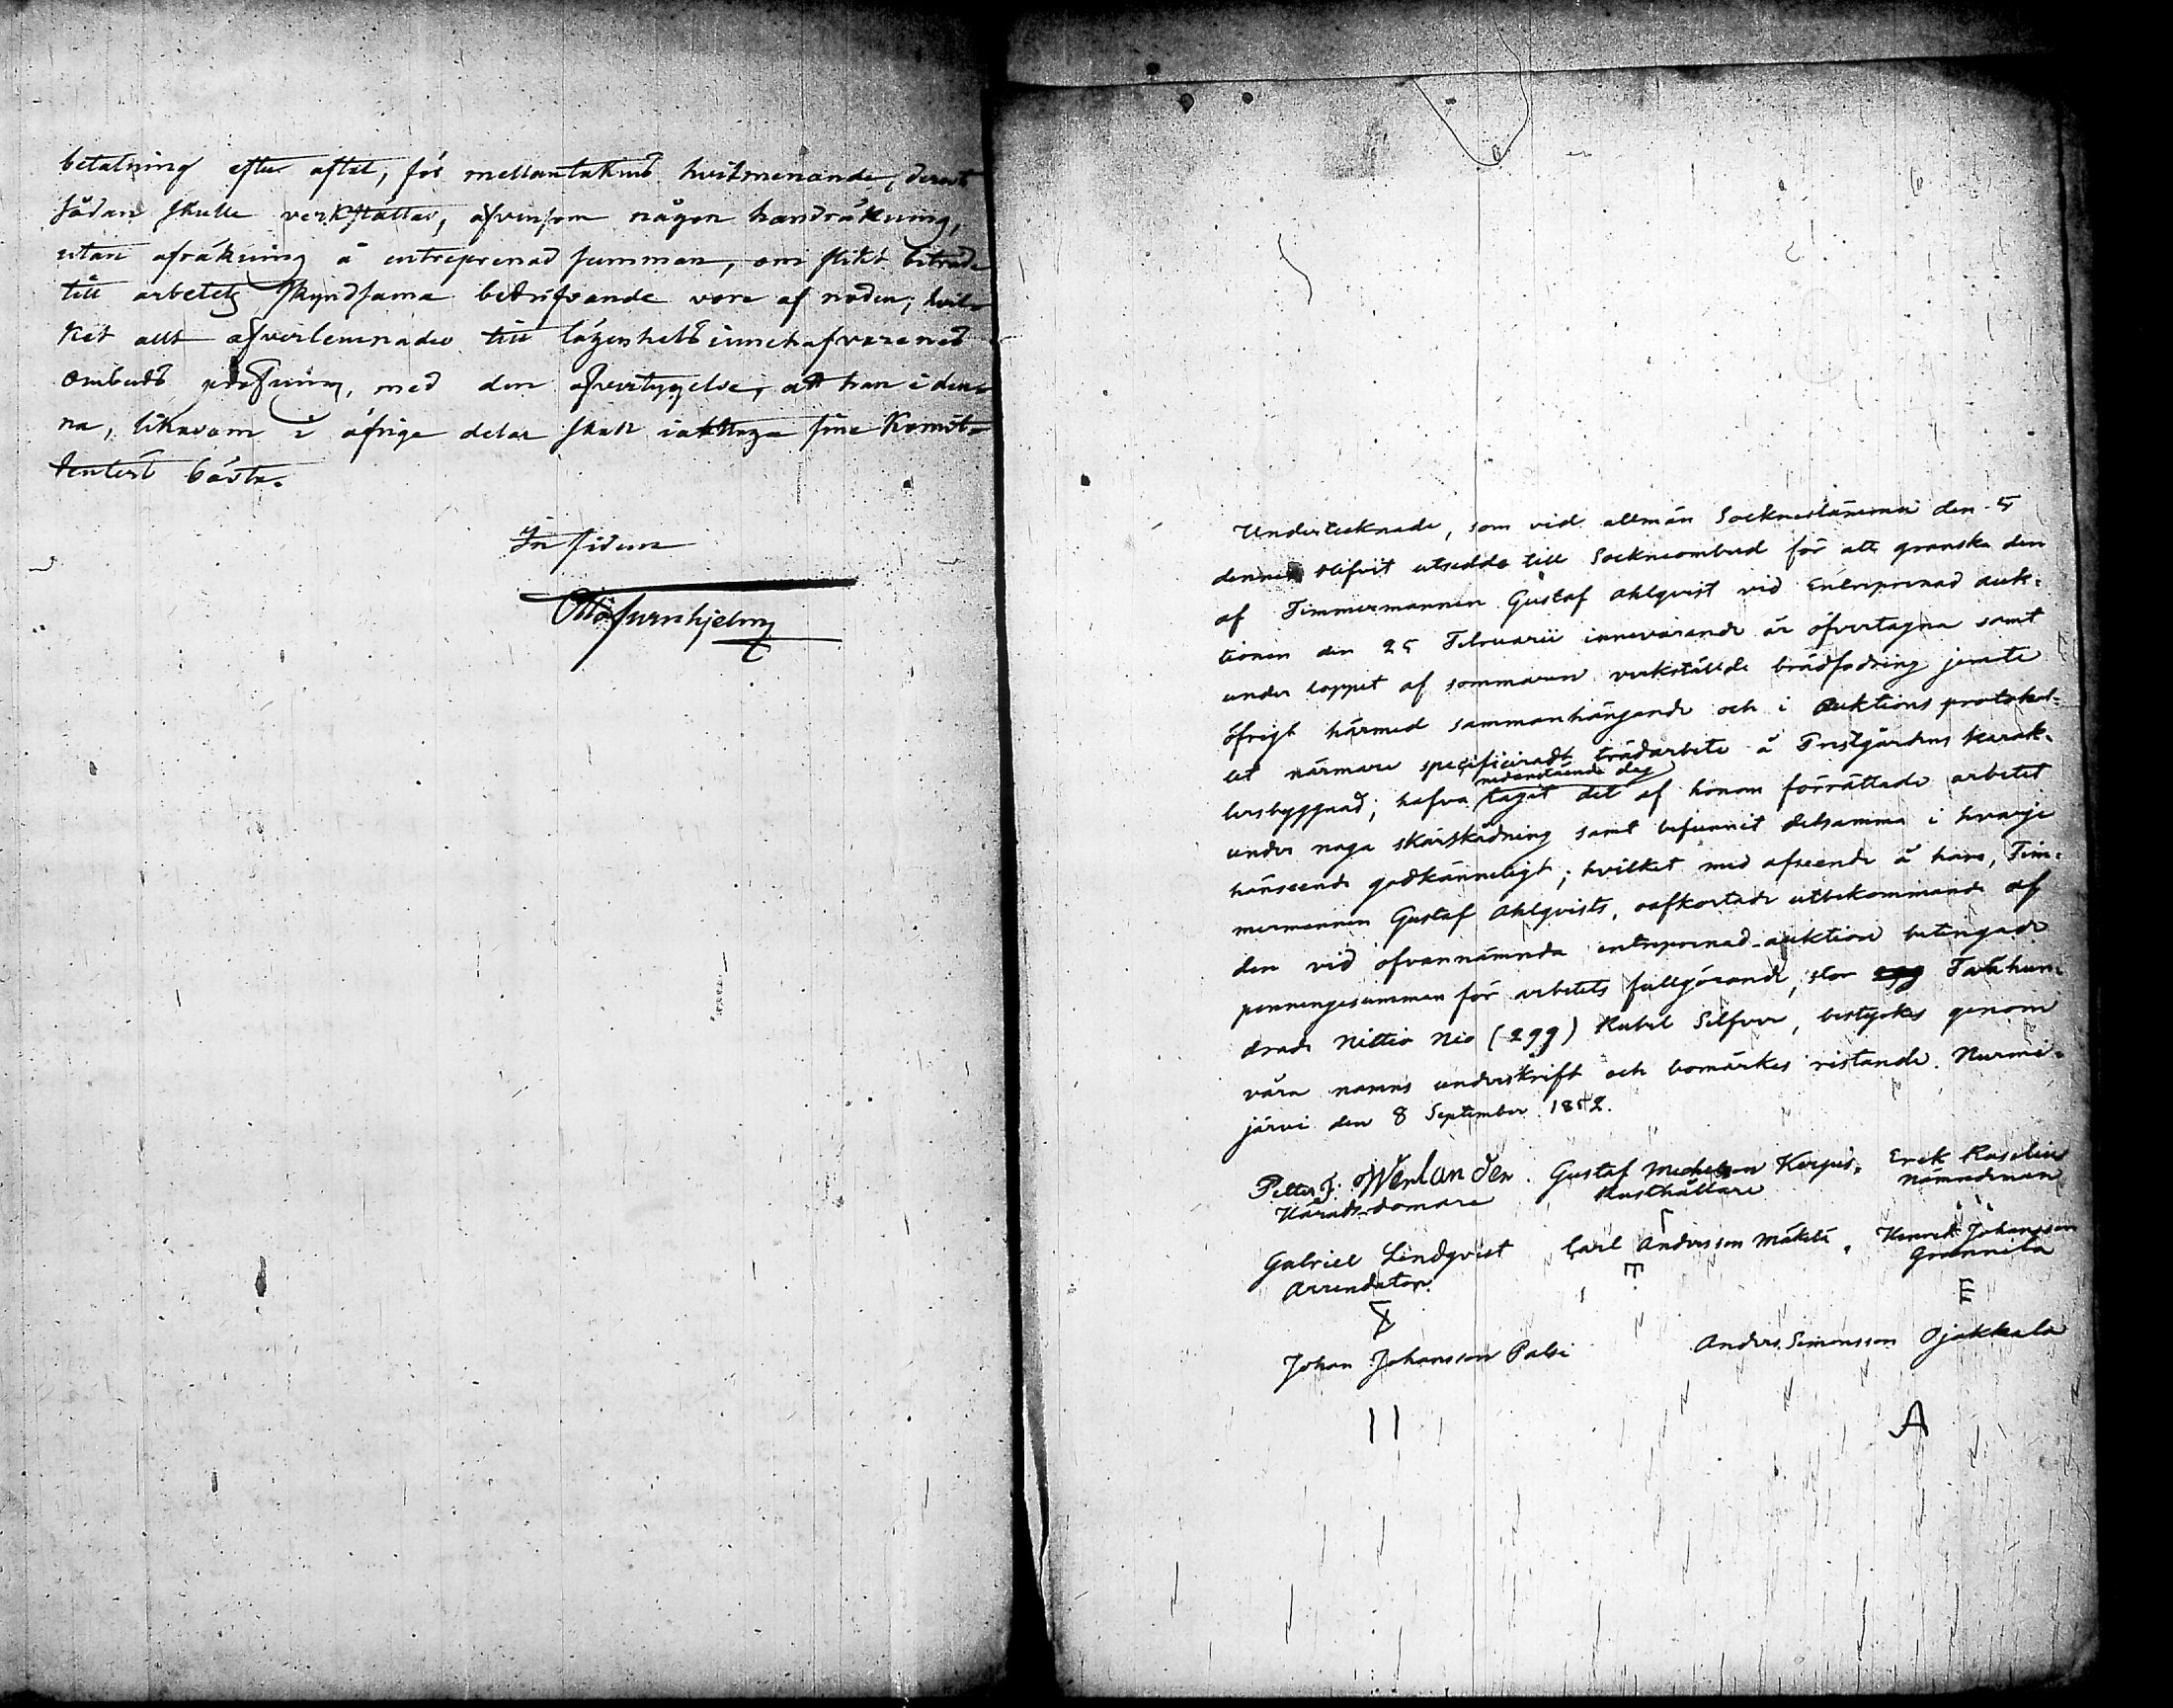 betalning efter aftal, för mellantakens hvitmenande, derest
sådan skulle verkställas, äfvensom någon handräkning,
utan afräkning å entreprenad summan, om slikt biträde
till arbetets skyndsama bedrifvande vore af nöden; hvil-
ket allt öfverlemnades till lägenhets innehafvarens
Ombuds pröfning, med den öfvertygelse, att han i den-
na, likasom i öfrige delar skall iakttaga sine Komit-
tenters bästa.
In fidem
Otto Furuhjelm
Undertecknade, som vid allmän Sockenstämma den 5
dennes blifvit utsedde till Sockneombud för att granska den
af Timmermannen Gustaf Ahlqvist vid Entreprenad auk-
tionen den 25 Februarii innevarande år öfvertagna samt
under loppet af sommaren verkställde brädfodring jemte
öfrigt härmed sammanhängande och i Auktions protokol-
let närmare specificeradt trädarbete å Prestgårdens karak-
tersbyggnad; hafva nedanstående dag tagit det af honom förrättade arbetet
under noga skärskådning samt befunnit detsamma i hvarje
hänseende godkänneligt; hvilket med afseende å hans, Tim-
mermannen Gustaf Ahlqvists, oafkortade utbekommande af
den vid ofvannämnda entreprenad-auktion betingade
penningesumman för arbetets fullgörande, stor Tvåhun-
drade Nittio Nio (299) Rubel Silfver, betyckes genom
våra namns underskrift och bomärkes ristande. Nurmi-
järvi den 8 September 1852.
Petter J. Werlander. Gustaf Michelsson Korpis. Erik Roselius
Härads-domare Rusthållare Nämndeman
Gabriel Lindqvist Carl Andersson Mäkelä. Henrik Johansson
Arrendator. Grannila
Johan Johansson Palsi Anders Simonsson Ojakkala
A